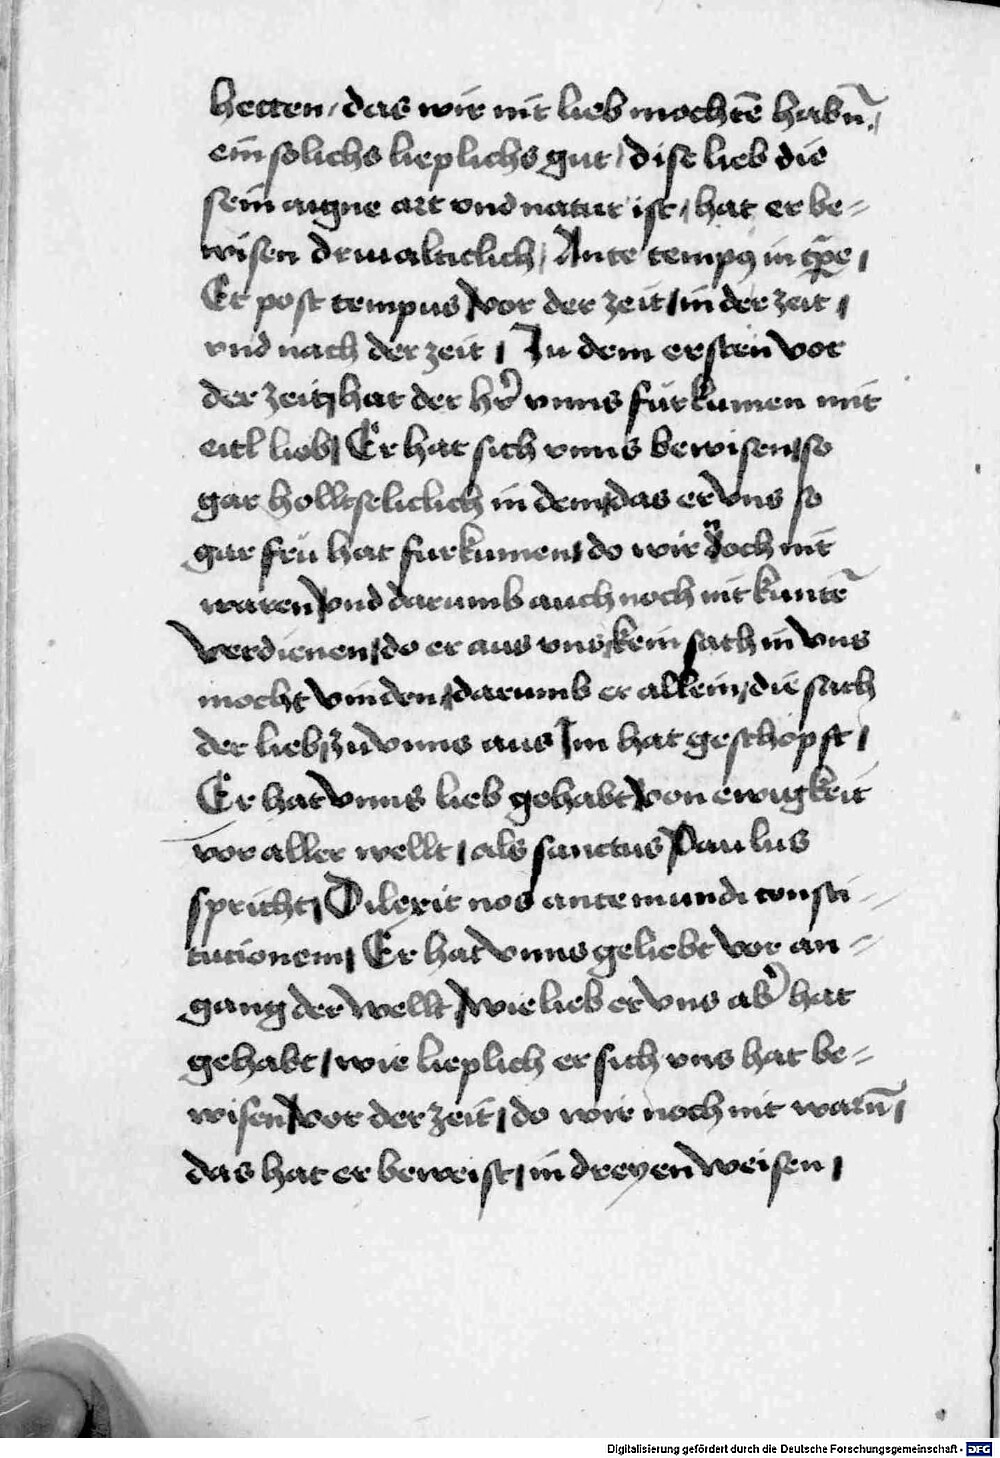 hetten / das wir nit lieb mochtē habn̄ /
ein solichs lieplichs gut / dise lieb die
sein aigne art vnd natur ist / hat er be=
wisen driualticlich / Ante tempꝯ in tp̄e /
Et post tempus / vor der zeit / in der zeit /
vnd nach der zeit / Zu dem ersten vor
der zeit / hat der hr̄ vnns fürkumen mit
eitl lieb / Er hat sich vnns bewisen / so
gar holltseliclich in dem / das er vns so
gar frü hat furkumen / do wir noch nit
waren / vnd darumb auch noch nit kuntē
verdienen / do er aus vns / kein sach in vns
mocht vinden / darumb er allein / die sach
der lieb / zu vnns aus Im hat geschöpft /
Er hat vnns lieb gehabt / von ewigkeit
vor aller wellt / als sanctus Paulus
spricht / Dilexit nos ante mundi consti=
tutionem / Er hat vnns geliebt vor an=
gang der wellt / wie lieb er vns ab̉ hat
gehabt / wie lieplich er sich vns hat be=
wisen / vor der zeit / do wir noch nit warn̄ /
das hat er beweist / in dreyen weisen /
Digitalisierung gefördert durch die Deutsche Forschungsgemeinschaft - DFG